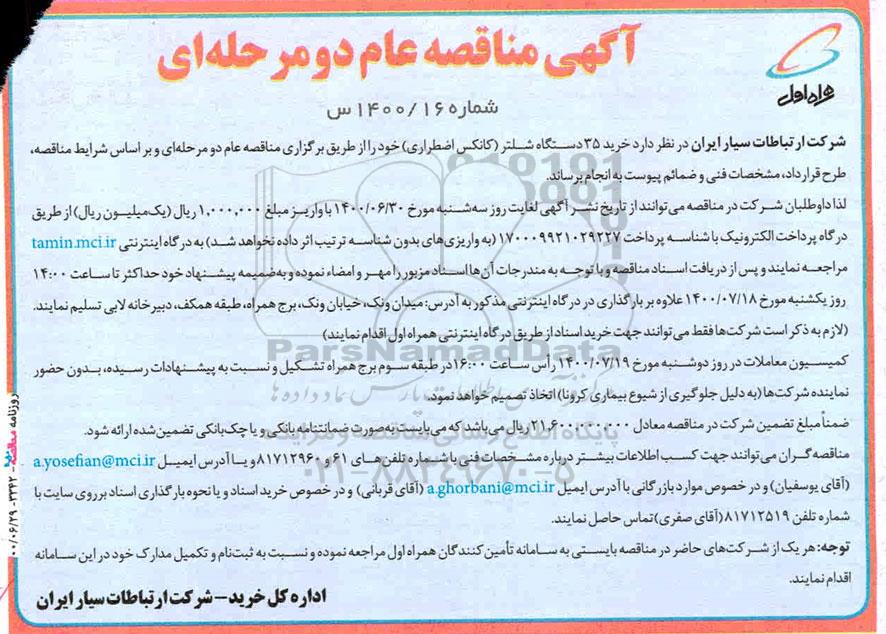 آگهی مناقصه عام دو مرحله‌ای
همراه اول
شماره ۱۴۰۰/۱۶ س
شرکت ارتباطات سیار ایران در نظر دارد خرید ۳۵ دستگاه شلتر (کانکس اضطراری) خود را از طریق برگزاری مناقصه عام دو مرحله‌ای و بر اساس شرایط مناقصه،
طرح قرارداد، مشخصات فنی و ضمائم پیوست به انجام برساند.
لذا داوطلبان شرکت در مناقصه می‌توانند از تاریخ نشر آگهی لغایت روز سه‌شنبه مورخ ۱۴۰۰/۰۶/۳۰ با واریز مبلغ ۱,۰۰۰,۰۰۰ ریال (یک میلیون ریال) از طریق
درگاه پرداخت الکترونیک با شناسه پرداخت ۱۷۰۰۰۹۹۲۱۰۲۹۲۲۷ (به واریزی‌های بدون شناسه ترتیب اثر داده نخواهد شد) به درگاه اینترنتی tamin.mci.ir
مراجعه نمایند و پس از دریافت اسناد مناقصه و با توجه به مندرجات آن‌ها اسناد مزبور را مهر و امضاء نموده و به‌ضمیمه پیشنهاد خود حداکثر تا ساعت ۱۴:۰۰
روز یکشنبه مورخ ۱۴۰۰/۰۷/۱۸ علاوه بر بارگذاری در درگاه اینترنتی مذکور به آدرس: میدان ونک، خیابان ونک، برج همراه، طبقه همکف، دبیرخانه لابی تسلیم نمایند.
(لازم به ذکر است شرکت‌ها فقط می‌توانند جهت خرید اسناد از طریق درگاه اینترنتی همراه اول اقدام نمایند)
کمیسیون معاملات در روز دوشنبه مورخ ۱۴۰۰/۰۷/۱۹ رأس ساعت ۱۶:۰۰ در طبقه سوم برج همراه تشکیل و نسبت به پیشنهادات رسیده، بدون حضور
نماینده شرکت‌ها (به دلیل جلوگیری از شیوع بیماری کرونا) اتخاذ تصمیم خواهد نمود.
ضمناً مبلغ تضمین شرکت در مناقصه معادل ۲۱,۶۰۰,۰۰۰,۰۰۰ ریال می‌باشد که می‌بایست به‌صورت ضمانتنامه بانکی و یا چک بانکی تضمین شده ارائه شود.
مناقصه‌گران می‌توانند جهت کسب اطلاعات بیشتر درباره مشخصات فنی با شماره تلفن‌های ۶۱ و ۸۱۷۱۲۹۶۰ و یا آدرس ایمیل a.yosefian@mci.ir
(آقای یوسفیان) و در خصوص موارد بازرگانی با آدرس ایمیل a.ghorbani@mci.ir (آقای قربانی) و در خصوص خرید اسناد و یا نحوه بارگذاری اسناد بر روی سایت با
شماره تلفن ۸۱۷۱۲۵۱۹ (آقای صفری) تماس حاصل نمایند.
توجه: هر یک از شرکت‌های حاضر در مناقصه بایستی به سامانه تأمین کنندگان همراه اول مراجعه نموده و نسبت به ثبت‌نام و تکمیل مدارک خود در این سامانه
اقدام نمایند.
اداره کل خرید – شرکت ارتباطات سیار ایران
ParsNamadData
پایگاه اطلاع رسانی مناقصه و مزایده
۰۲۱-۸۸۳۴۹۶۷۰-۵
روزنامه مناقصه
۰۰/۰۶/۲۹-۳۳۴۲